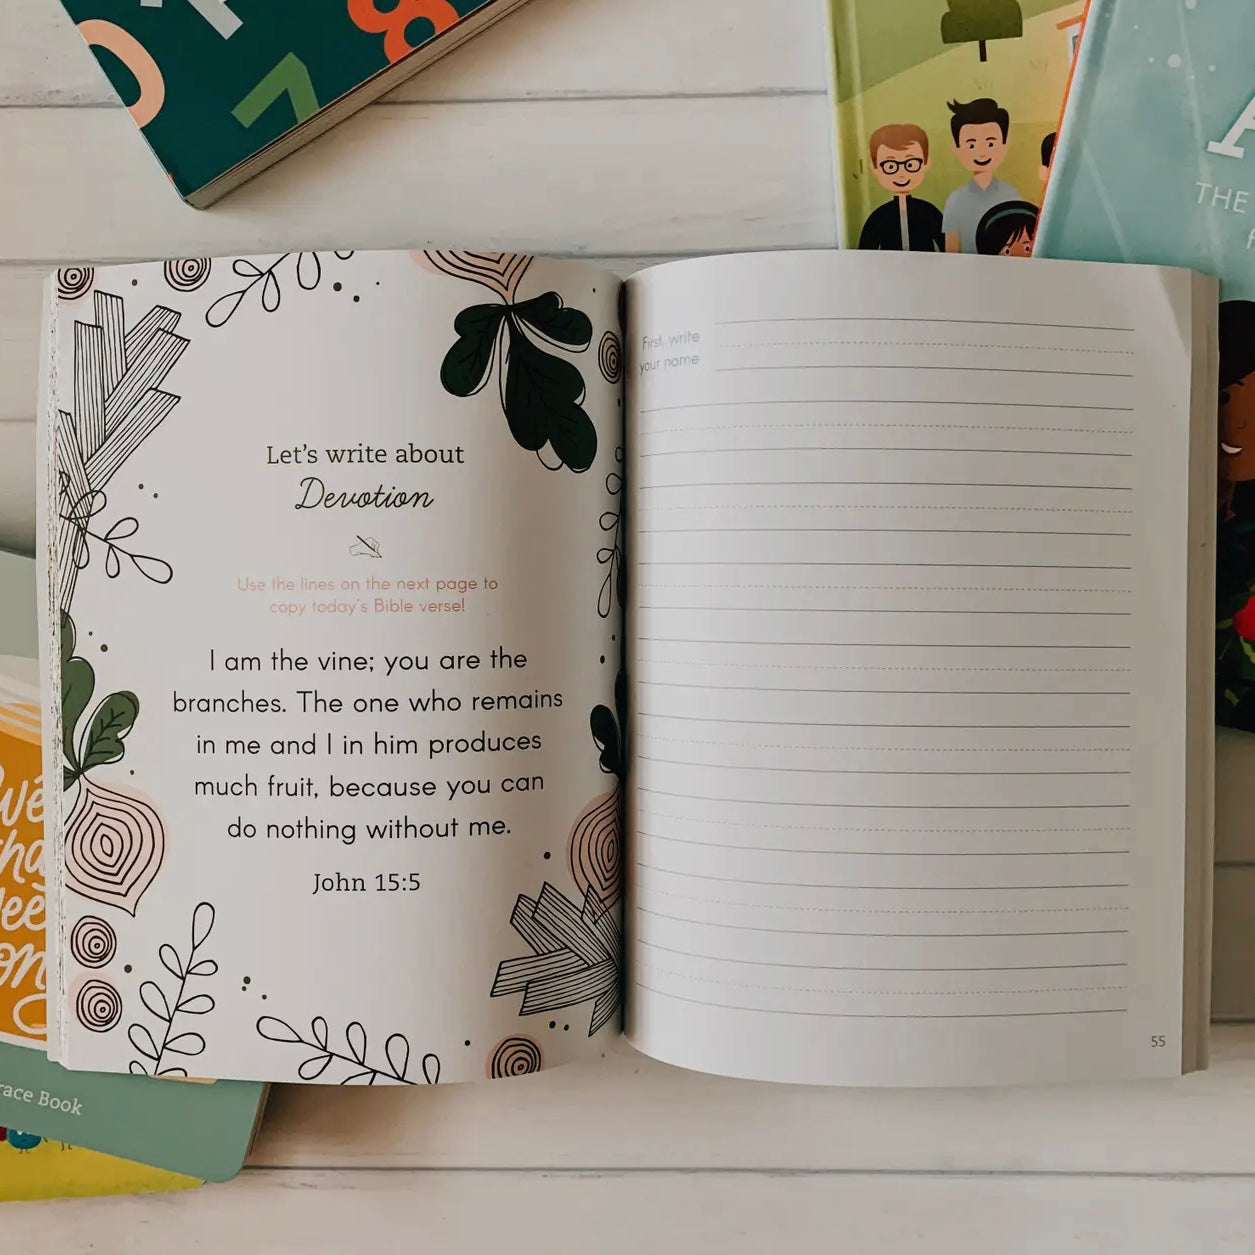 8
7
THE
Let's write about
Devotion
Use the lines on the next page to
copy today's Bible verse!
I am the vine; you are the
branches. The one who remains
in me and I in him produces
much fruit, because you can
do nothing without me.
John 15:5
First, write
your name
55
Book